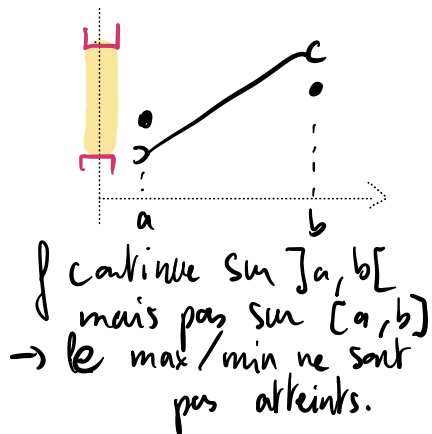 a b
f continue sur ]a,b[
mais pas sur [a,b]
→ le max/min ne sont
pas atteints.